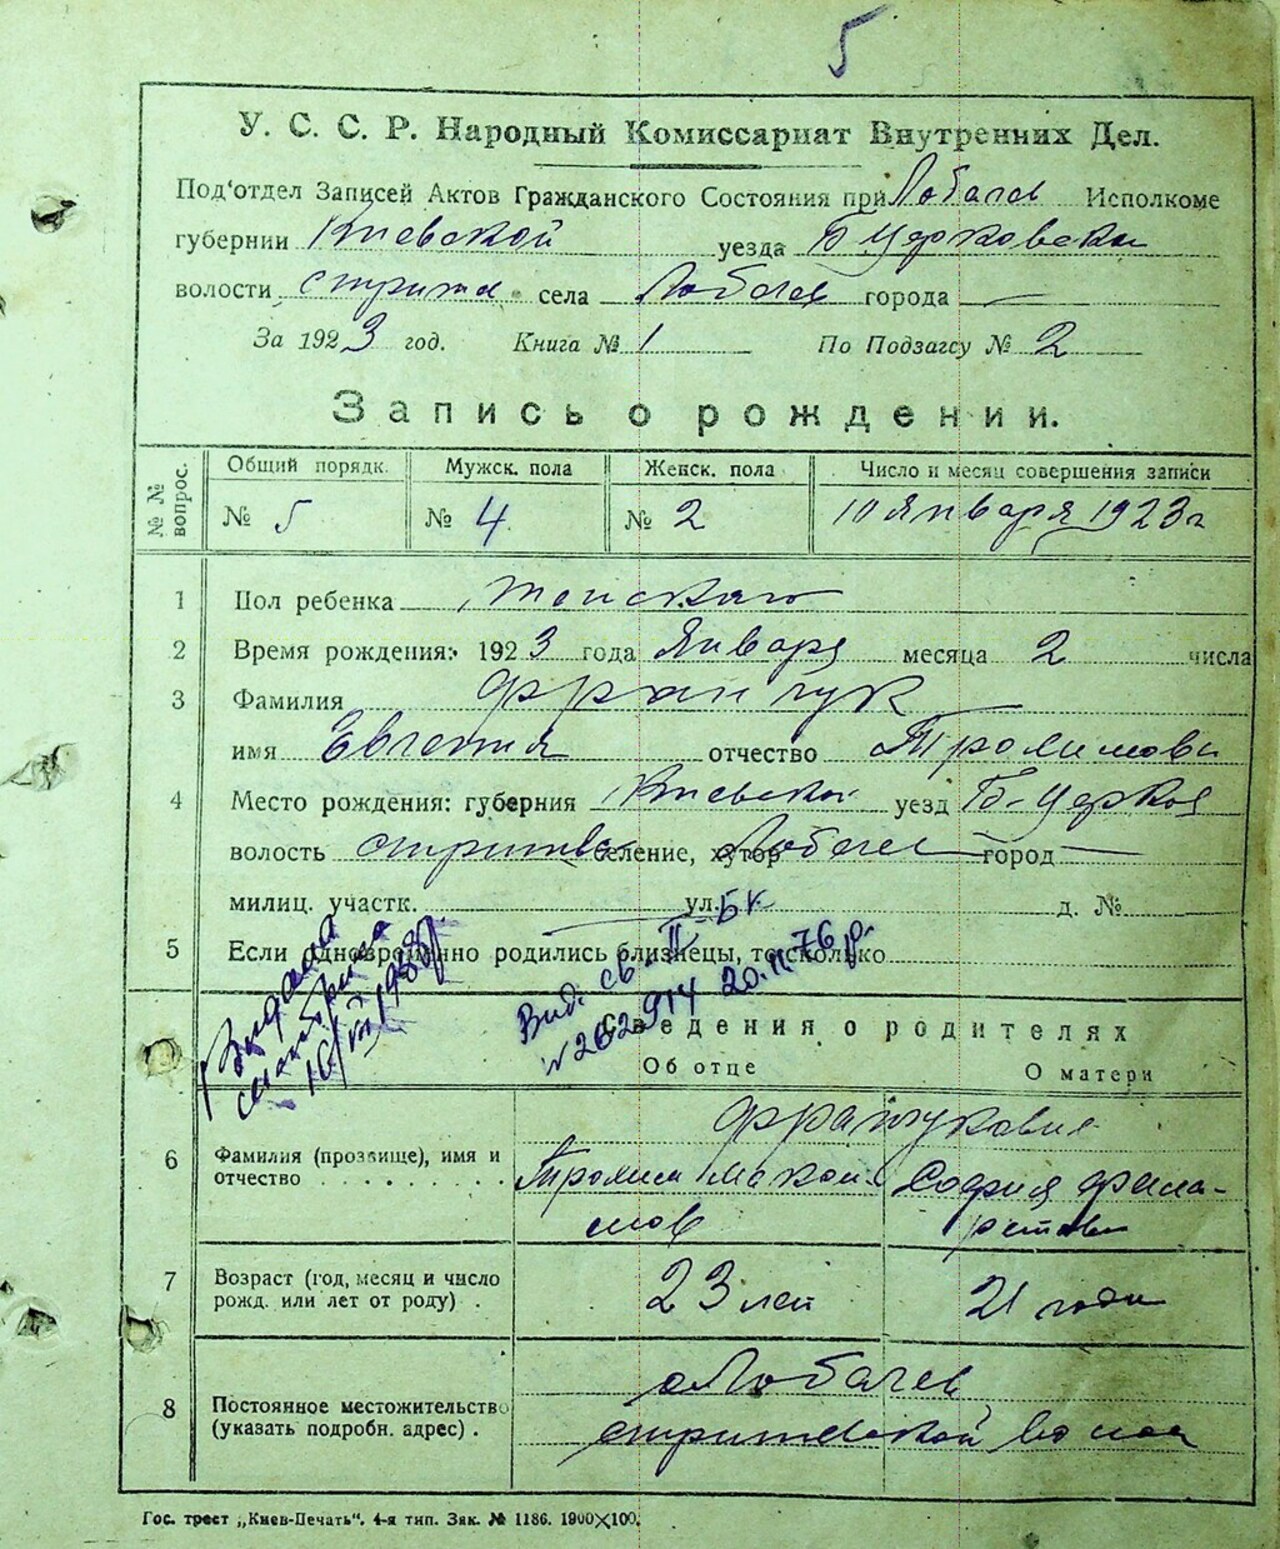 5
У. С. С. Р. Народный Комиссариат Внутренних Дел.
Под'отдел Записей Актов Гражданского Состояния при Лобачев Исполкоме
губернии Киевской уезда Б Церковском
волости села Лобачев города —
За 1923 год. Книга № 1 По Подзагсу № 2
Запись о рождении.
№ № вопрос. Общий порядк. Мужск. пола Женск. пола Число и месяц совершения записи
№ 5 № 4 № 2 10 Января 1923 г
1 Пол ребенка женскаго
2 Время рождения: 1923 года Января месяца 2 числа
3 Фамилия Франчук
имя Евгения отчество
4 Место рождения: губерния Киевской уезд Б-Церков
волость селение, хутор Лобачев город —
милиц. участк. ул. д. №
5 Если одновременно родились близнецы, то сколько
Видана
16/VII 1938
Вид. св. II-БК
№ 262914 20.II.76 р.
Сведения о родителях
Об отце О матери
6 Фамилия (прозвище), имя и отчество
София Фила-
ретовн
7 Возраст (год, месяц и число рожд. или лет от роду). 23 лет 21 годи
8 Постоянное местожительство (указать подробн. адрес). Лобачев
Гос. трест „Киев-Печать“. 4-я тип. Зак. № 1186. 1900×100.